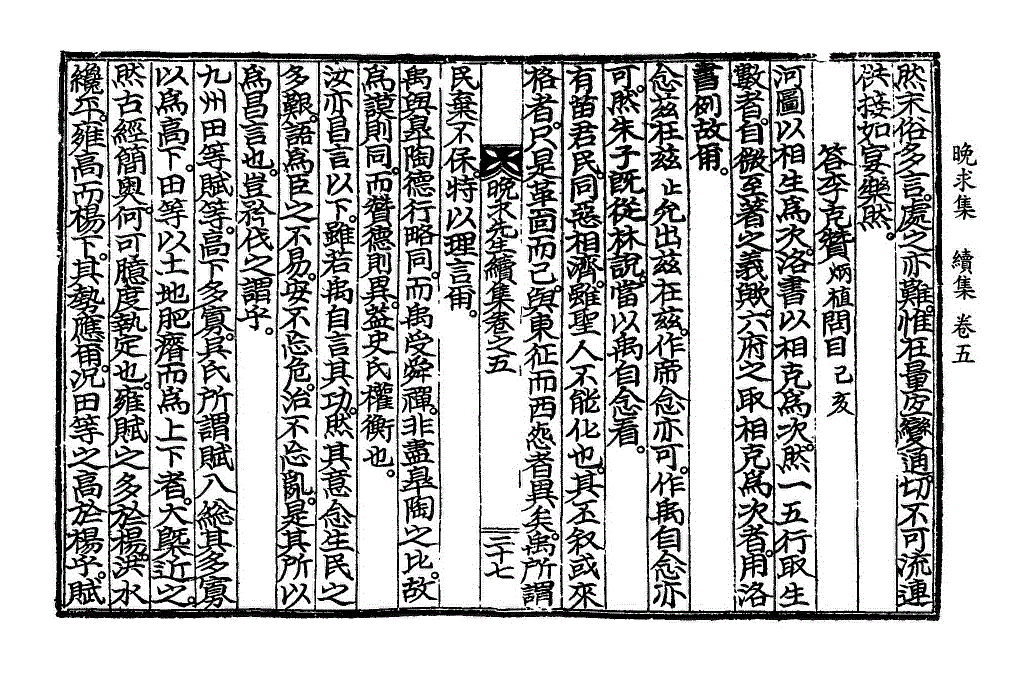 晩求集　續集　卷五
然末俗多言。處之亦難。惟在量度變通。切不可流連
洪接如宴樂然。
答李克贊炳植問目 己亥
河圖以相生爲次。洛書以相克爲次。然一五行取生
數者。自微至著之義歟。六府之取相克爲次者。用洛
書例故甭。
念玆在玆 止允出玆在玆。作帝念亦可。作禹自念亦
可。然朱子旣從林說。當以禹自念看。
有苗君民。同惡相濟。雖聖人不能化也。其丕叙或來
格者。只是革面而已。與東征而西怨者異矣。禹所謂
晩求先生續集卷之五
三十七
民棄不保。特以理言甭。
禹與臯陶德行略同。而禹受舜禪。非盡臯陶之比。故
爲謨則同。而贊德則異。葢史氏權衡也。
汝亦昌言以下。雖若禹自言其功。然其意念生民之
多艱。語爲臣之不易。安不忘危。治不忘亂。是其所以
爲昌言也。豈矜伐之謂乎。
九州田等賦等。高下多寡。吳氏所謂賦入總其多寡
以爲高下。田等以土地肥瘠而爲上下者。大槩近之。
然古經簡奧。何可臆度執定也。雍賦之多於楊。洪水
纔平。雍高而楊下。其勢應甭。况田等之高於楊乎。賦